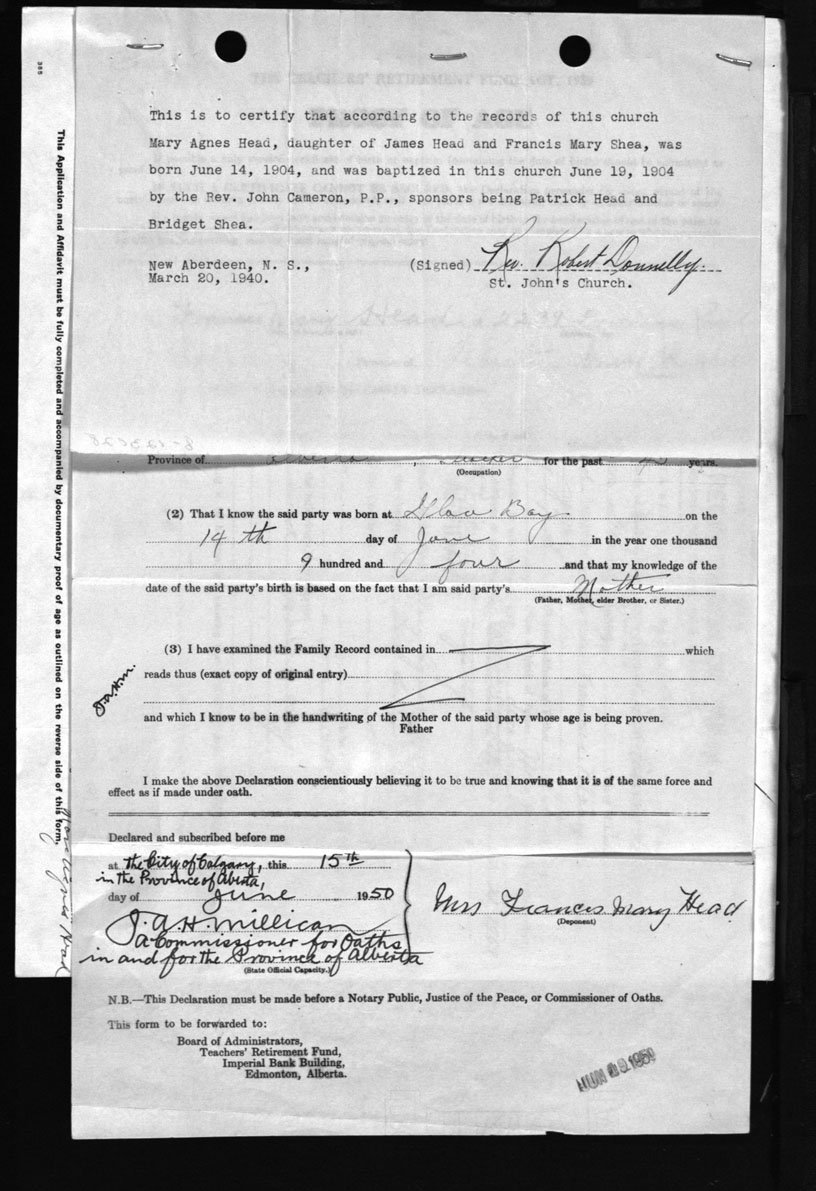 This is to certify that according to the records of this church
Mary Agnes Head, daughter of James Head and Francis Mary Shea, was
born June 14, 1904, and was baptized in this church June 19, 1904
by the Rev. John Cameron, P.P., sponsors being Patrick Head and
Bridget Shea.
New Aberdeen, N. S.,
March 20, 1940.
(Signed) Rev. Robert Donnelly.
St. John's Church.
Province of , for the past years.
(Occupation)
(2) That I know the said party was born at Glace Bay on the
14 th day of June in the year one thousand
9 hundred and four and that my knowledge of the
date of the said party's birth is based on the fact that I am said party's Mother
(Father, Mother, elder Brother, or Sister.)
(3) I have examined the Family Record contained in which
reads thus (exact copy of original entry)
J.A.H.M.
and which I know to be in the handwriting of the Mother of the said party whose age is being proven.
Father
I make the above Declaration conscientiously believing it to be true and knowing that it is of the same force and
effect as if made under oath.
Declared and subscribed before me
at the City of Calgary, this 15th
in the Province of Alberta,
day of June 1950
J.A.H. Millican
A Commissioner for Oaths
in and for the Province of Alberta
(State Official Capacity.)
Mrs Frances Mary Head
(Deponent)
N.B.—This Declaration must be made before a Notary Public, Justice of the Peace, or Commissioner of Oaths.
This form to be forwarded to:
Board of Administrators,
Teachers' Retirement Fund,
Imperial Bank Building,
Edmonton, Alberta.
JUN 1950
385
This Application and Affidavit must be fully completed and accompanied by documentary proof of age as outlined on the reverse side of this form.
Mary Agnes Head